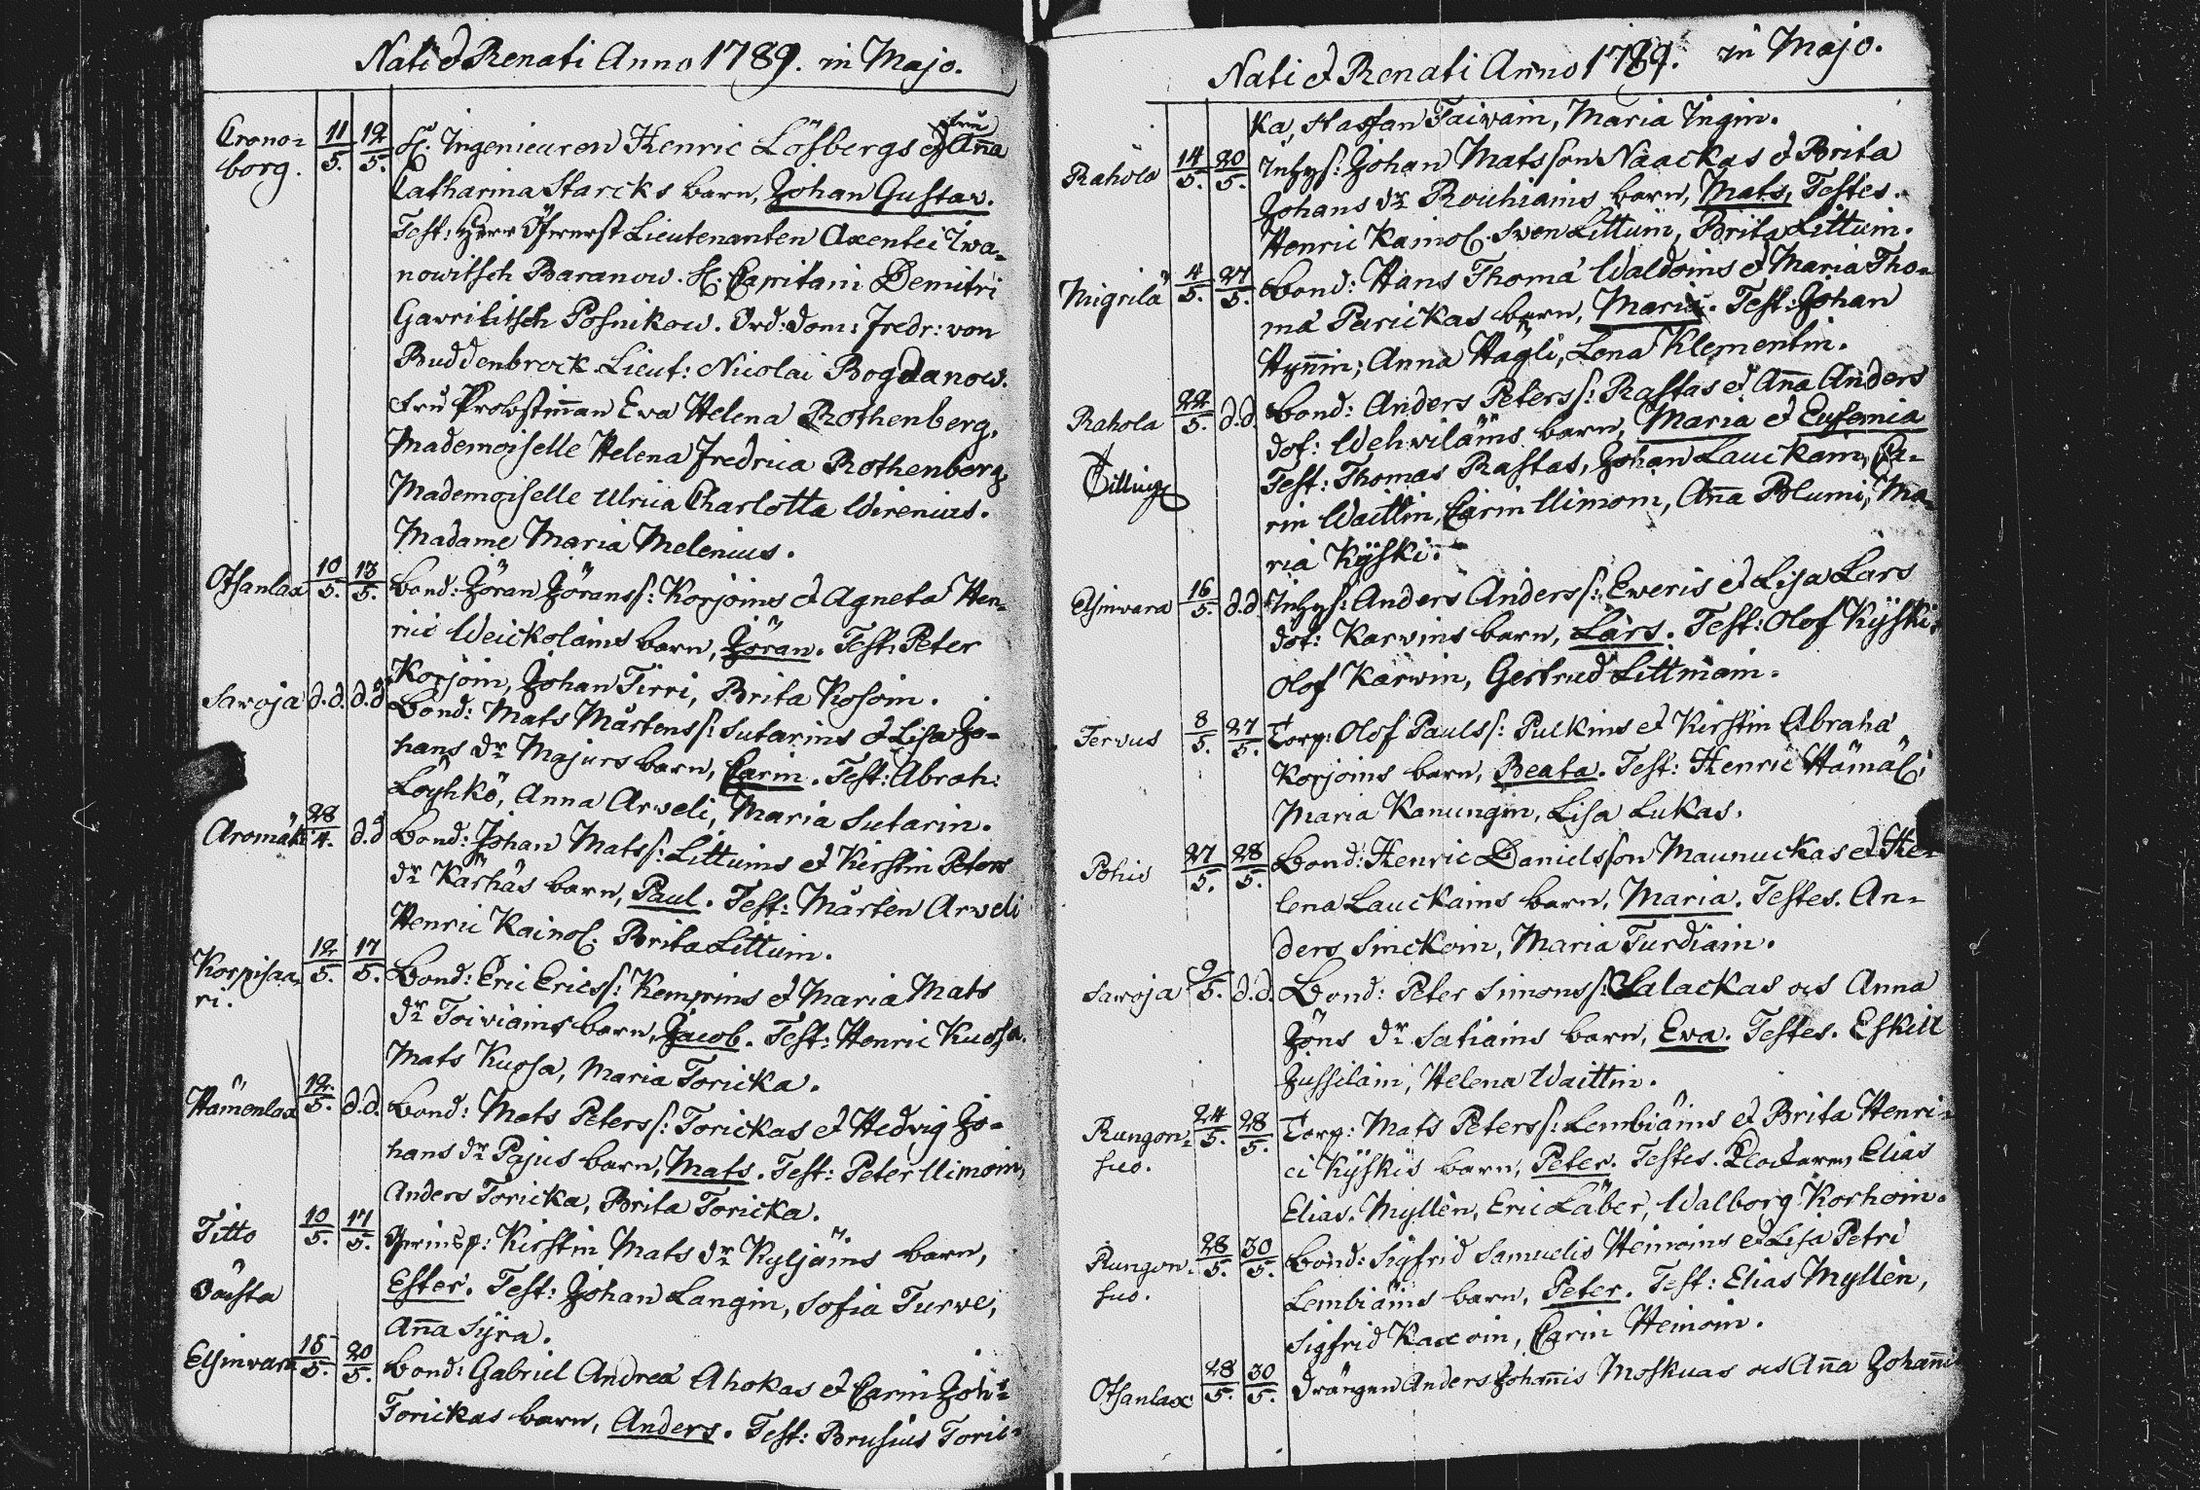 Nati et Renati Anno 1789. in Majo.
Crono= 11/5. 12/5. H: Ingenieuren Henric Löfbergs et fru Aña
borg. Catharina Starcks barn, Johan Gustav.
Test: Herr Öfwerst Lieutenanten Axentei Iwa=
nowitsch Baranow. H: Capitain Demitri
Gavrilitsch Posnikow. Ord: dom: Fredr: von
Buddenbrock Lieut: Nicolai Bogdanow.
fru Probstiñan Eva Helena Rothenberg,
Mademoiselle Helena Fredrica Rothenberg,
Mademoiselle Ulrica Charlotta Wirenius.
Madame Maria Melenius.
Otsanlax 10/5. 13/5. bond: Jöran Jöranss: Korjoins et Agneta Hen=
rici Weickolains barn, Jöran. Test: Peter
Korjoin, Johan Tirri, Brita Kosoin.
Savoja d.d. d.d. Bond: Mats Mårtenss: Sutarins et Lisa Jo=
hans dr Majurs barn, Carin. Test: Abrah:
Löyhkö, Anna Arveli, Maria Sutarin.
Aromäki 28/4. d.d. bond: Johan Matss: Littuins et Kirstin Peters
dr Kärhäs barn, Paul. Test: Mårten Arveli
Henric Kainol: Brita Littuin.
Korpisaa= 12/5. 17/5. Bond: Eric Ericss: Kemppins et Maria Mats
ri. dr Toiviains barn, Jacob. Test: Henric Kuosa.
Mats Kuosa, Maria Toricka.
Hämenlax 12/5. d.d. Bond: Mats Peterss: Torickas et Hedvig Jo=
hans dr Pajus barn, Mats. Test: Peter Uimoin,
Anders Toricka, Brita Toricka.
Titto 10/5. 17/5. Kirstin Mats dr Kyljäins barn,
Oästa Ester. Test: Johan Langin, Sofia Turve,
Aña Syra.
Elsinvara 15/5. 20/5. Bond: Gabriel Andreæ Ahokas et Carin Joh:
Torickas barn, Anders. Test: Brusius Toric=
Nati et Renati Anno 1789. in Majo.
ka, Staffan Taivain, Maria Ingin.
Rahola 14/5. 20/5. Inhys: Johan Matsson Naackas et Brita
Johans dr Rouhiains barn, Mats, Testes.
Henric Kainol: Sven Littuin, Brita Littuin.
Migrilä 4/5. 27/5. Bond: Hans Thomæ Waldoins et Maria Tho=
mæ Parickas barn, Maria. Test: Johan
Hyñin, Anna Hägli, Lena Klementin.
Rahola 22/5. d.d. Bond: Anders Peterss: Rastas et Aña Anders
dot: Wehviläins barn, Maria et Eufemia
Tilling Test: Thomas Rastas, Johan Lauckain, Ca=
rin Waittin, Carin Uimoin, Aña Blumi, Ma=
ria Kyski.
Elsinvara 16/5. d.d. Inhys: Anders Anderss: Eweris et Lisa Lars
dot: Karvins barn, Lars. Test: Olof Kyski,
Olof Karvin, Gertrud Littmain.
Tervus 8/5. 27/5. Torp: Olof Paulss: Pulkins et Kirstin Abrahæ
Korjoins barn, Beata. Test: Henric Hämäl:
Maria Kanungin, Lisa Lukas.
Pohis 27/5. 28/5. Bond: Henric Danielsson Maunuckas et He=
lena Lauckains barn, Maria. Testes. An=
ders Sinckoin, Maria Turdiain.
Savoja 9/5. d.d. Bond: Peter Simonss: Salackas ocs Anna
Jöns dr Satiains barn, Eva. Testes. Eskill
Jussilain, Helena Waittin.
Rungon= 24/5. 28/5. Torp: Mats Peterss: Lembiäins et Brita Henri=
suo. ci Kyskis barn, Peter. Testes. Elias
Elias. Myllèn, Eric Läber, Walborg Korhoin.
Rungon= 28/5. 30/5. bond: Sigfrid Samuelis Heinoins et Lisa Petri
suo. Lembiäins barn, Peter. Test: Elias Myllèn,
Sigfrid Kaxoin, Carin Heinoin.
Otsanlax 28/5. 30/5. drängen Anders Johañis Moskuas ocs Aña Johañi